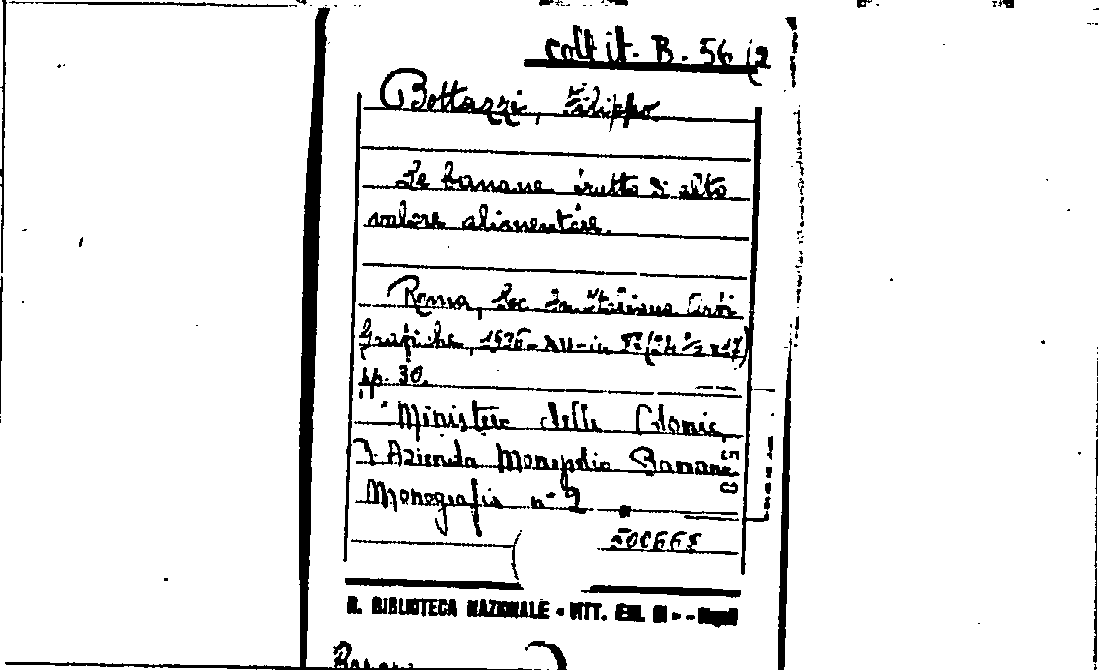 coll it. B. 56 (2
Bottazzi, Filippo
Le banane frutto di alto
valore alimentare.
Roma, Soc. Italiana Arti
Grafiche, 1936-XIV-in 8° (24 1/2 x 17)
pp. 30.
Ministero delle Colonie
R. Azienda Monopolio Banane
Monografia n° 2
R. BIBLIOTECA NAZIONALE - VITT. EM. III - - Napoli